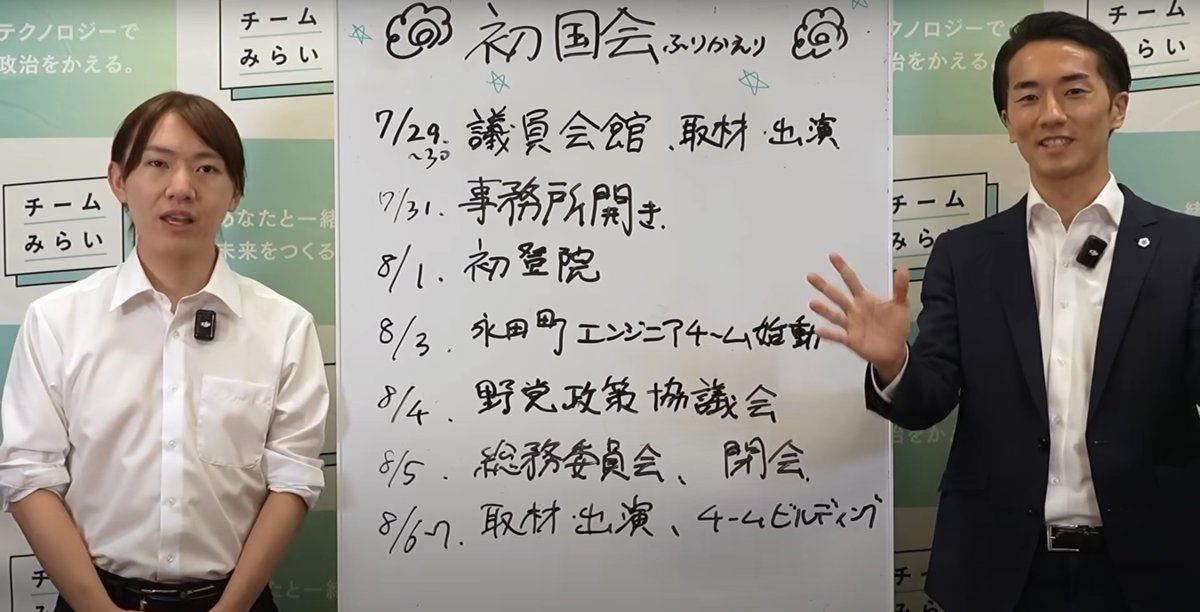 テクノロジーで
政治をかえる。
チーム
みらい
チーム
みらい
あなたと一緒
未来をつくる
チーム
初国会ふりかえり
7/29.〜30 議員会館、取材・出演
7/31. 事務所開き.
8/1. 初登院
8/3. 永田町エンジニアチーム始動
8/4. 野党政策協議会
8/5. 総務委員会、閉会.
8/6~7. 取材・出演、チームビルディング
テクノ
政治をかえる
チーム
みらい
チーム
みらい
チーム
みらい